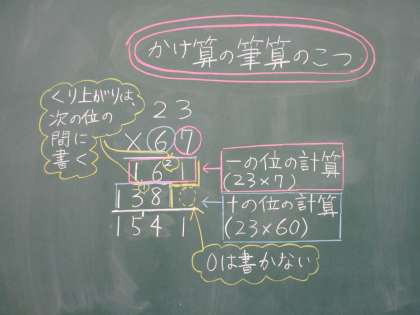 かけ算の筆算のこつ
くり上がりは、
次の位の
間に
書く
23
×67
1621
一の位の計算
(23×7)
1318
十の位の計算
(23×60)
1541
0は書かない